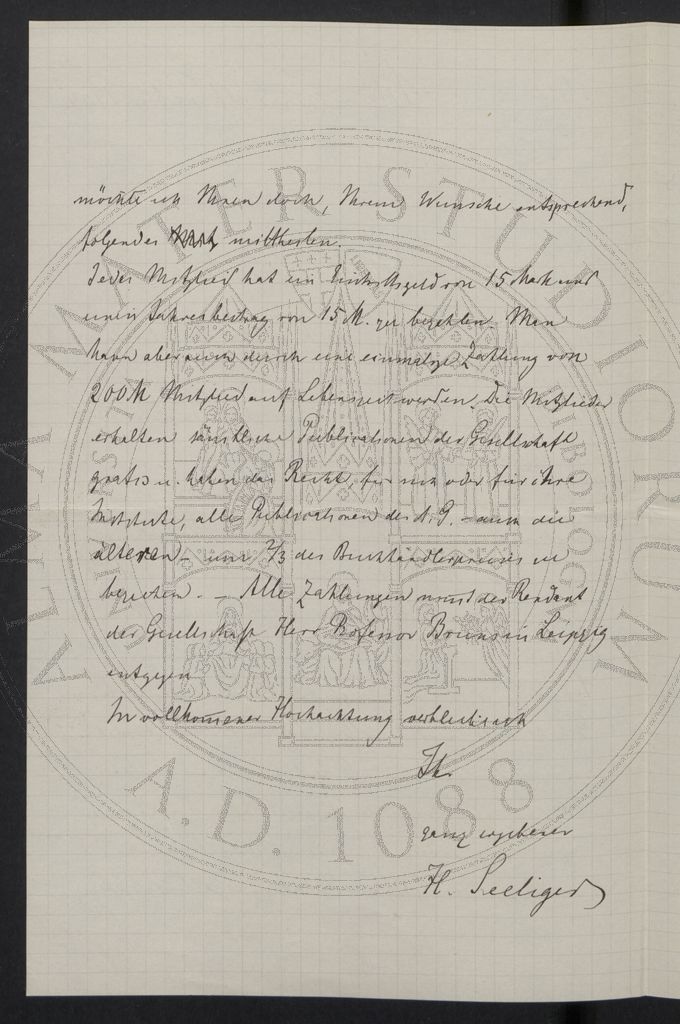 möchte ich Ihnen doch, Ihrem Wunsche entsprechend,
folgendes mittheilen.
Jedes Mitglied hat ein Eintrittsgeld von 15 Mark und
einen Jahresbeitrag von 15 M. zu bezahlen. Man
kann aber auch durch eine einmalige Zahlung von
200 M Mitglied auf Lebenszeit werden. Die Mitglieder
erhalten sämtliche Publicationen der Gesellschaft
gratis u. haben das Recht, für sich oder für ihre
Institute, alle Publicationen der A. G. – auch die
älteren – um 2/3 des Buchhändlerpreises zu
beziehen. – Alle Zahlungen nimmt der Rendant
der Gesellschaft Herr Professor Bruns in Leipzig
entgegen
In vollkomener Hochachtung verbleibe ich
Ihr
ganz ergebener
H. Seeliger
ALMA MATER STUDIORUM
A.D. 1088